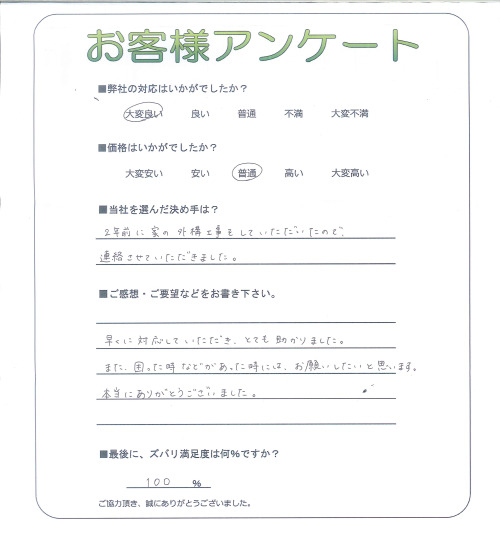 お客様アンケート
■弊社の対応はいかがでしたか？
大変良い 良い 普通 不満 大変不満
■価格はいかがでしたか？
大変安い 安い 普通 高い 大変高い
■当社を選んだ決め手は？
2年前に家の外構工事をしていただいたので、
連絡させていただきました。
■ご感想・ご要望などをお書き下さい。
早くに対応していただき、とても助かりました。
また、困った時などがあった時には、お願いしたいと思います。
本当にありがとうございました。
■最後に、ズバリ満足度は何％ですか？
100 ％
ご協力頂き、誠にありがとうございました。